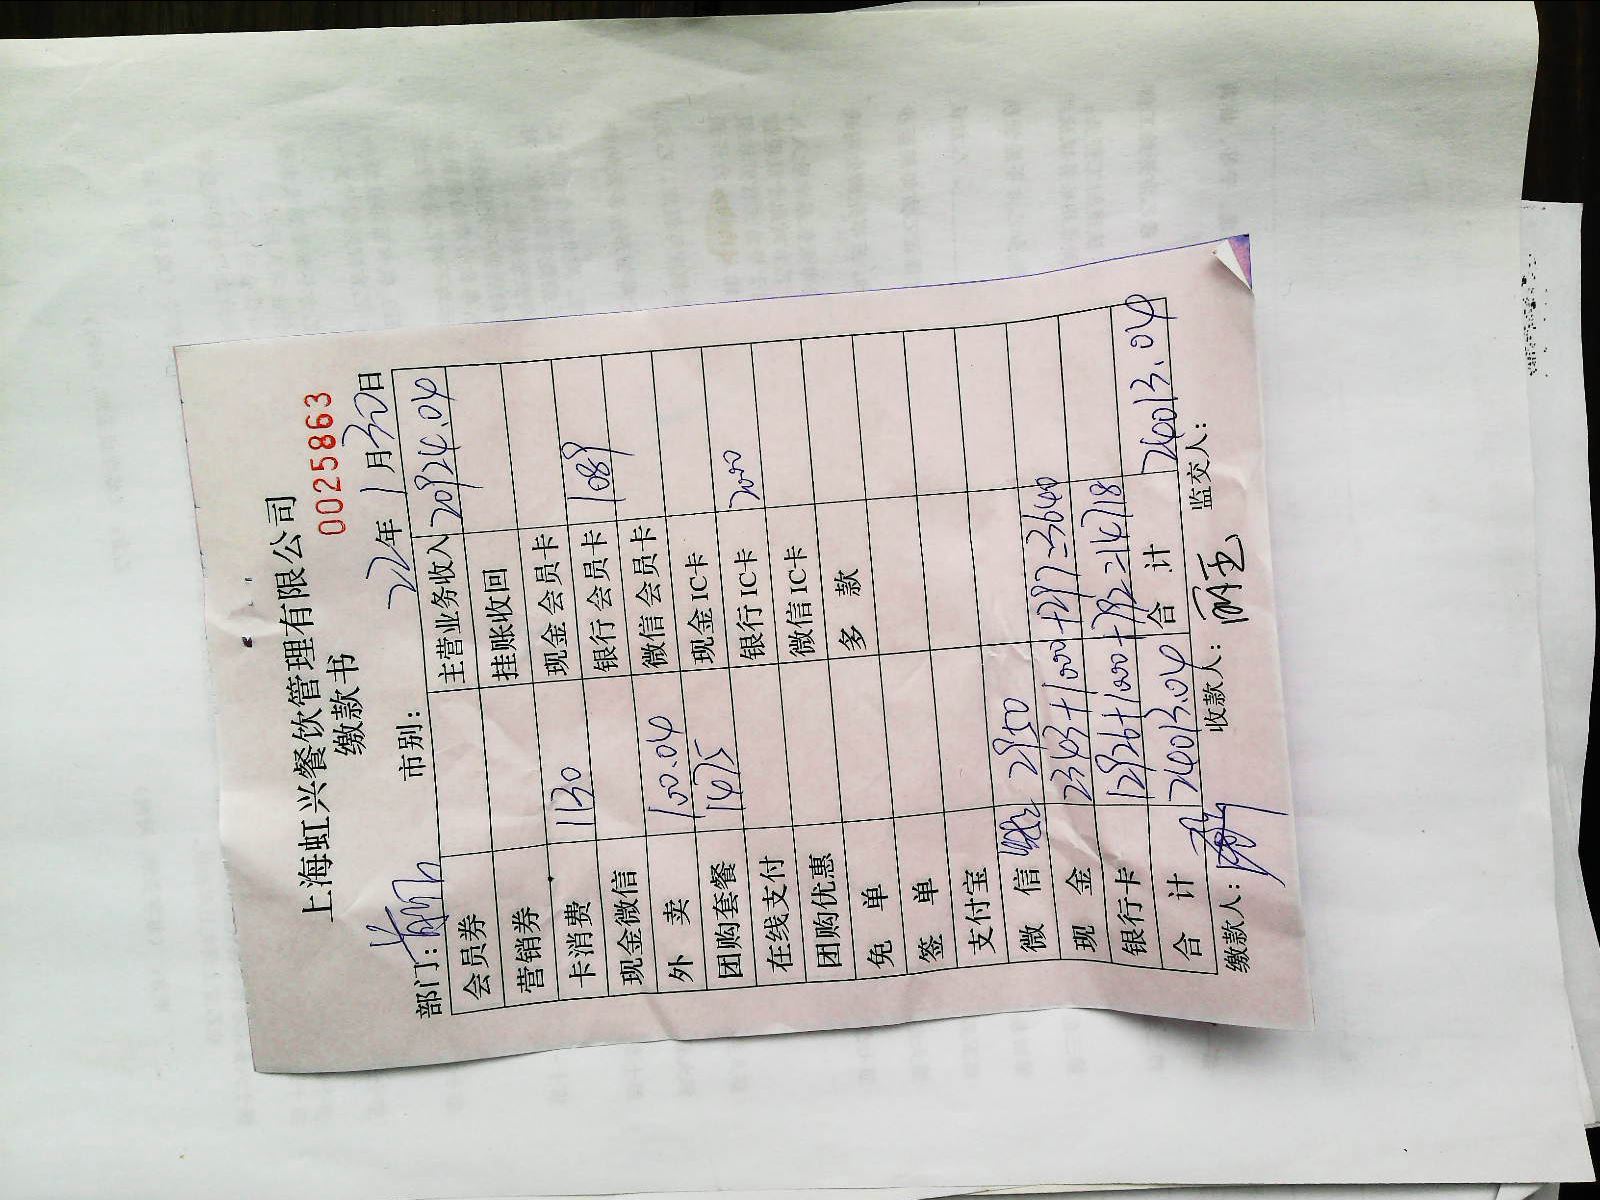 上海虹兴餐饮管理有限公司
缴款书 00025863
部门: 市别: 22年1月30日
会员券 主营业务收入 20924.04
营销券 挂账收回
卡消费 1130 现金会员卡
现金微信 银行会员卡 1089
外 卖 100.04 微信会员卡
团购套餐 1475 现金IC卡
在线支付 银行IC卡 2000
团购优惠 微信IC卡
免 单 多 款
签 单
支付宝
微 信 2950
现 金 2343+1000+297=3640
银行卡 12926+1000+792=14718
合 计 24013.04 合 计 24013.04
缴款人: 收款人: 监交人: